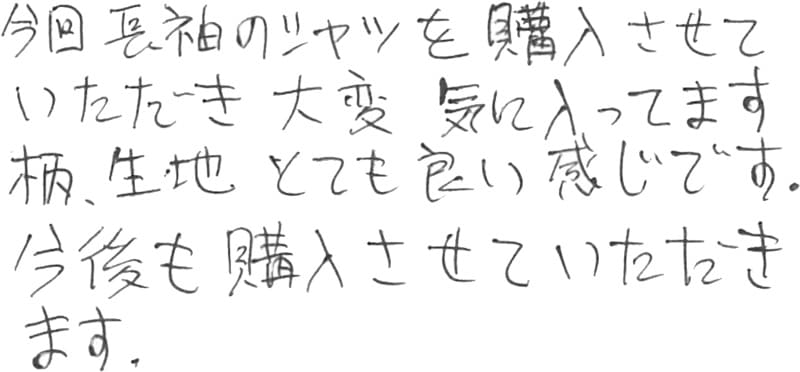 今回 長袖のシャツを購入させて
いただき 大変 気に入ってます
柄、生地 とても良い感じです.
今後も購入させていただき
ます.